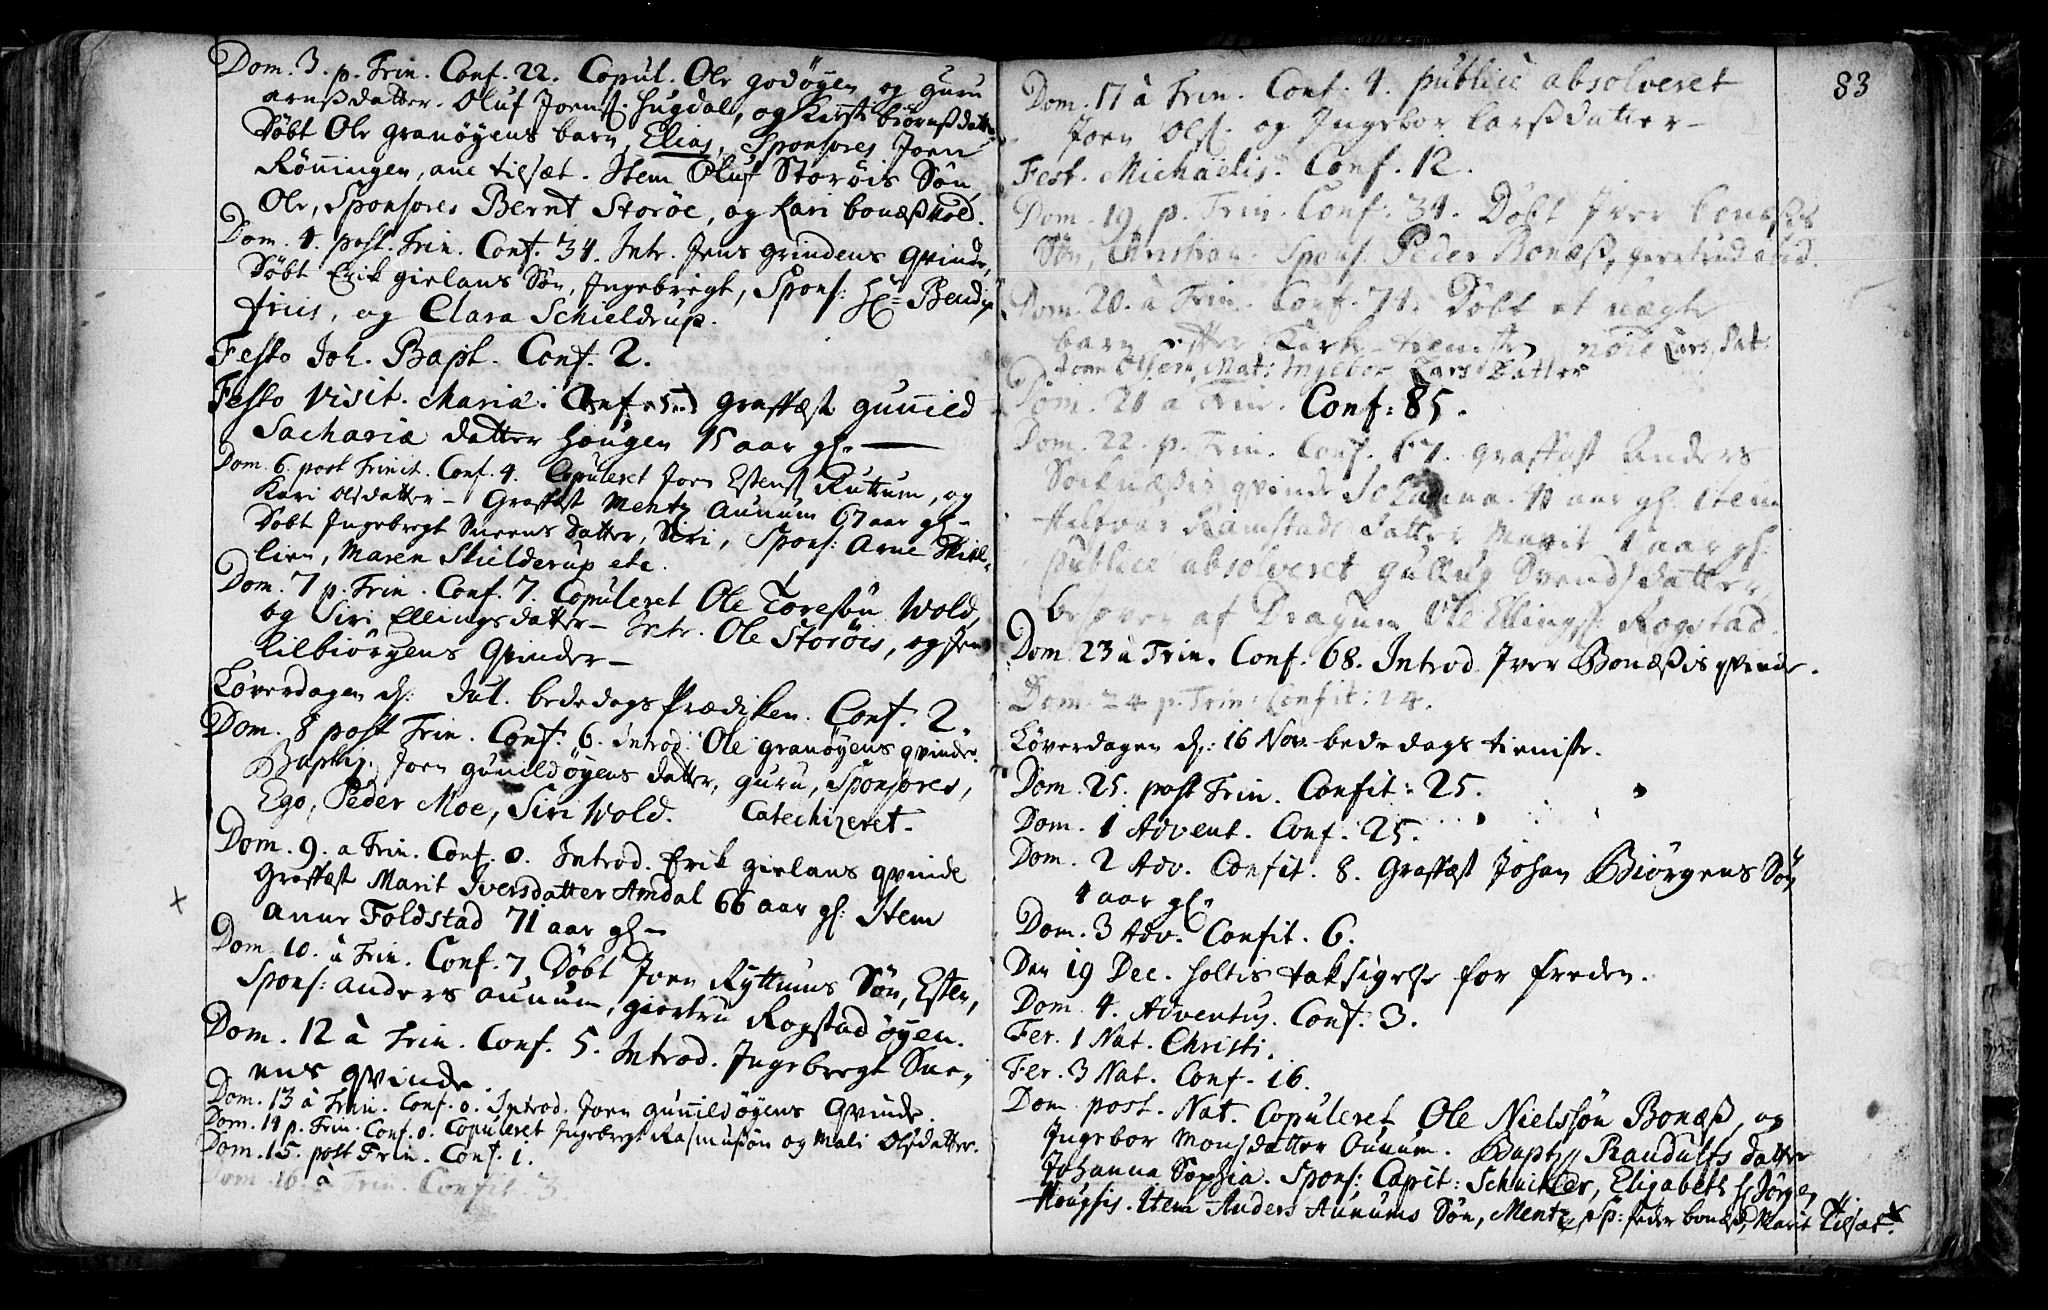 Dom. 3. p. Trin. Conf. 22. Copul. Ole godöyen og guru
arnßdatter. Oluf Joenß. Hugdal, og Kirsti biörnßdatter
Döbt Ole granöyens barn, Elias, Sponsores Joen
Rönningen, ane tilsæt. Item Oluf Storöis Sön
Ole, Sponsores Bernt Storöe, og Kari bonæßvold.
Dom. 4. post. Trin. Conf. 34. Intr. Jens grindens qvinde,
Döbt Erik gielans Sön, Ingebregt, Spons: Hr. Bendix
friis, og Clara Schieldrup.
Festo Joh. Bapt. Conf. 2.
Festo Visit. Mariæ. Conf. 5. Graffæst gunild
Sachariæ datter Haugen 15 aar gl.
Dom. 6. post Trinit. Conf. 4. Copuleret Joen Estenß Ruttum, og
Kari Olsdatter - Graffæst Mentz Aunum 67 aar gl -
Döbt Ingebregt Sneens datter, Siri, Spons: Arne
lien, Maren Skielderup etc.
Dom. 7 p. Trin. Conf. 7. Copuleret Ole Toresön Wold,
og Siri Ellingsdatter - Intr. Ole Storöis, og Jens
Lilbiörgens Qvinder -
Löverdagen d: Jul. bededags Prædiken. Conf. 2.
Dom. 8 post Trin. Conf. 6. Introd. Ole granöyens qvinde.
Baptiz. Joen gunildöyens datter, guru, Sponsores,
Ego, Peder Moe, Siri Wold. Catechizeret.
Dom. 9. a Trin. Conf. 0. Introd. Erik gielans qvinde
Graffæst Marit Iversdatter Amdal 66 aar gl: Item
Anne Foldstad 71 aar gl -
Dom. 10. à Trin. Conf. 7. Döbt Joen Ryttums Sön, Esten,
Spons: anders aunum, giertru Rogstadöyen.
Dom. 12 à Trin. Conf. 5. Introd. Ingebregt Sne-
ens qvinde.
Dom. 13 à Trin. Conf. 0. Introd. Joen gunildöyens Qvinde.
Dom. 14 p. Trin. Conf. 0. Copuleret Ingebregt Rasmußön og Mali Olsdatter.
Dom. 15. post Trin. Conf. 1.
Dom. 16 à Trin. Confit. 3.
83
Dom. 17 à Trin. Conf. 4. publicè absolveret
Joen Olß. og Ingebor Larßdatter -
Fest. Michaëlis. Conf. 12.
Dom. 19 p. Trin. Conf. 34. Döbt Iver bonæßes
Sön, Christian. Spons. Peder Bonæß, giertrud
Dom. 20. à Trin. Conf. 71. Döbt et uægte
barn efter Kirke-tienisten Lars, Pat:
Joen Olsen, Mat: Ingebor Lars Datter
Dom. 21 a Trin. Conf: 85.
Dom. 22. p. Trin. Conf. 67. graffæst Anders
Soknæßes qvinde Johanna. aar gl. item
Halvor Ramstads datter Marit 1 aar gl.
publicè absolveret gullug Svendsdatter,
besoven af Dragun Ole Ellingß: Rogstad.
Dom 23 à Trin. Conf. 68. Introd. Iver Bonæßis qvinde.
Dom. 24 p. Trin. Confit: 24.
Löverdagen d: 16 Nov. bededags tieniste.
Dom. 25. post Trin. Confit: 25.
Dom. 1 Advent. Conf. 25.
Dom. 2 Adv. Confit. 8. Graffæst Johan Biörgens Sön
1 aar gl.
Dom. 3 Adv. Confit. 6.
Den 19 Dec. holtis taksigelse for freden.
Dom. 4. Adventus. Conf. 3.
Fer. 1 Nat. Christi.
Fer. 3 Nat. Conf. 16.
Dom. post. Nat. Copuleret Ole Nielssön Bonæß, og
Ingebor Monsdatter Ounum. Baptz. Randulfs datter
Johanna Sophia. Spons: Capit: Schnitler, Elizabeth
Item Anders Aunums Sön, Mentz, Sp: Peder bonæß, Marit Tilsæt.